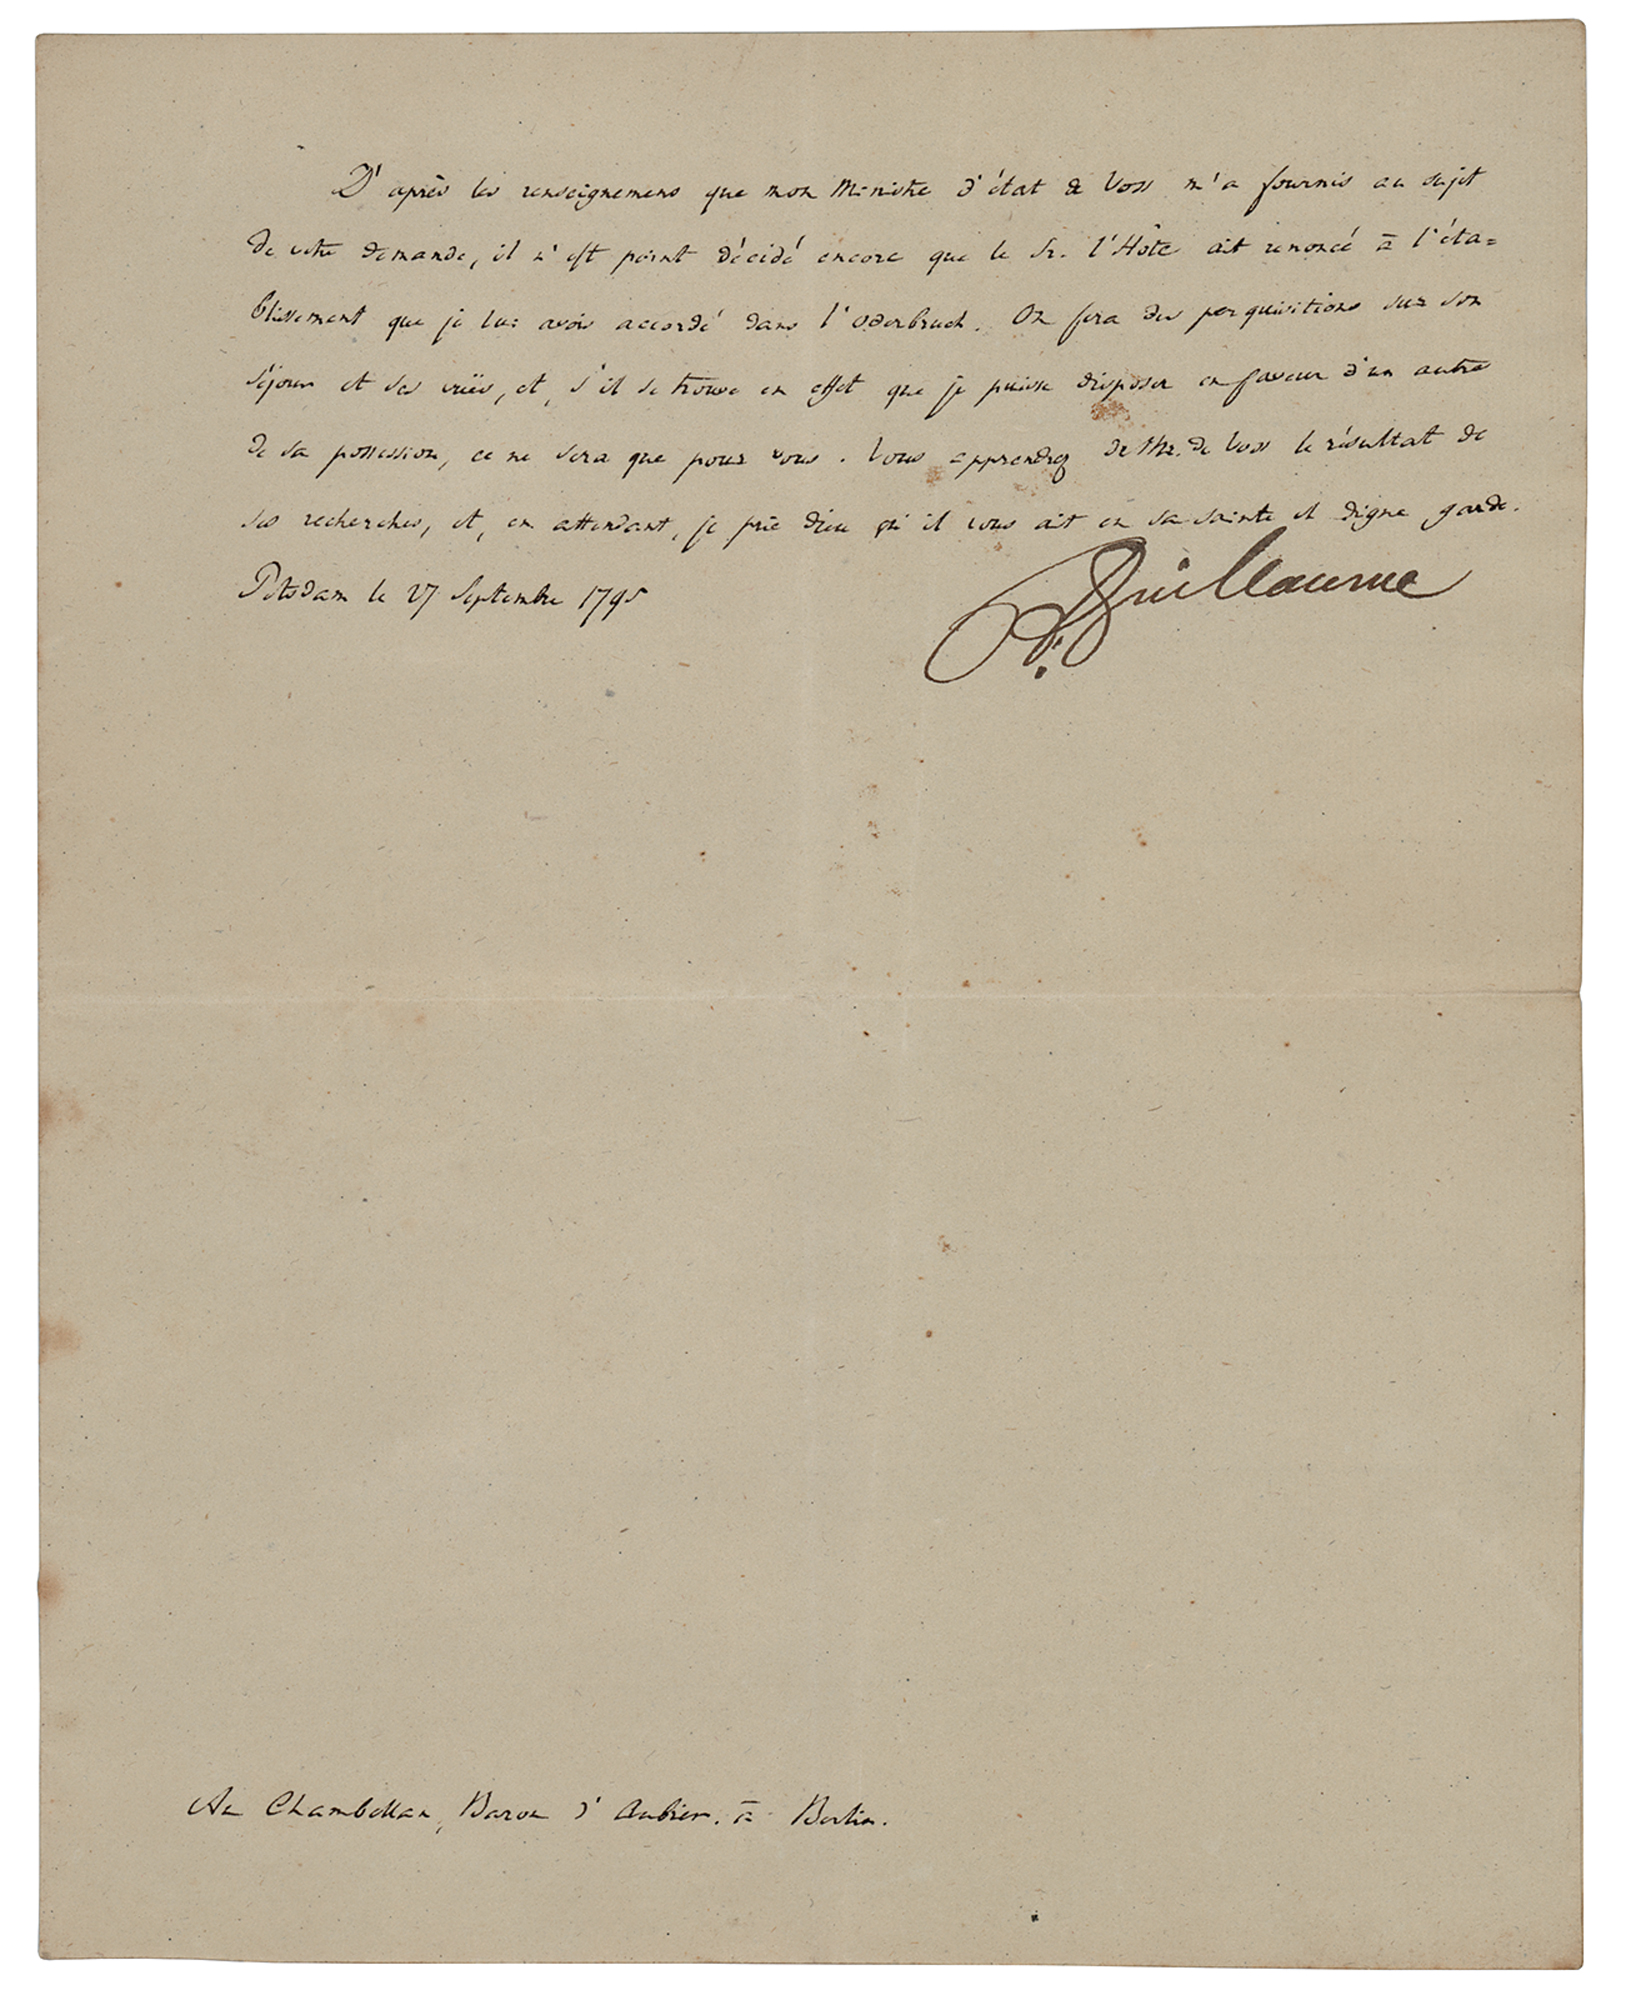 D'après les renseignemens que mon Ministre d'état de Voss m'a fournis au sujet
de votre demande, il n'est point décidé encore que le Sr. l'Hôte ait renoncé à l'éta=
blissement que je lui avois accordé dans l'Oderbruch. On fera des perquisitions sur son
séjour et ses vuës, et, s'il se trouve en effet que je puisse disposer en faveur d'un autre
de sa possession, ce ne sera que pour vous. Vous apprendrez de Mr. de Voss le résultat de
ses recherches, et, en attendant, je prie Dieu qu'il vous ait en sa sainte et digne garde.
Potsdam le 27 Septembre 1795
F. Guillaume
Au Chambellan, Baron d'Aubier. à Berlin.